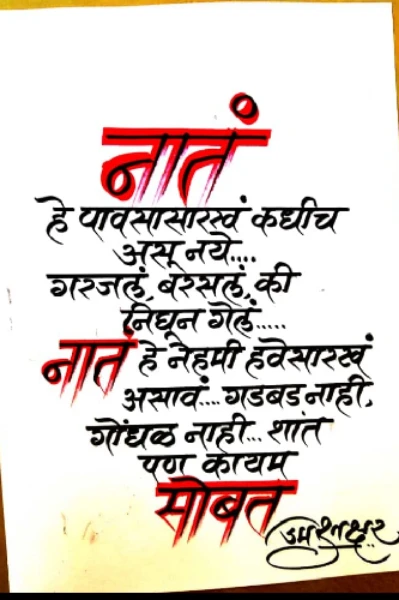 नातं
हे पावसासारखं कधीच
असू नये....
गरजलं, बरसलं, की
निघून गेलं.....
नातं हे नेहमी हवेसारखं
असावं.... गडबड नाही,
गोंधळ नाही... शांत
पण कायम
सोबत